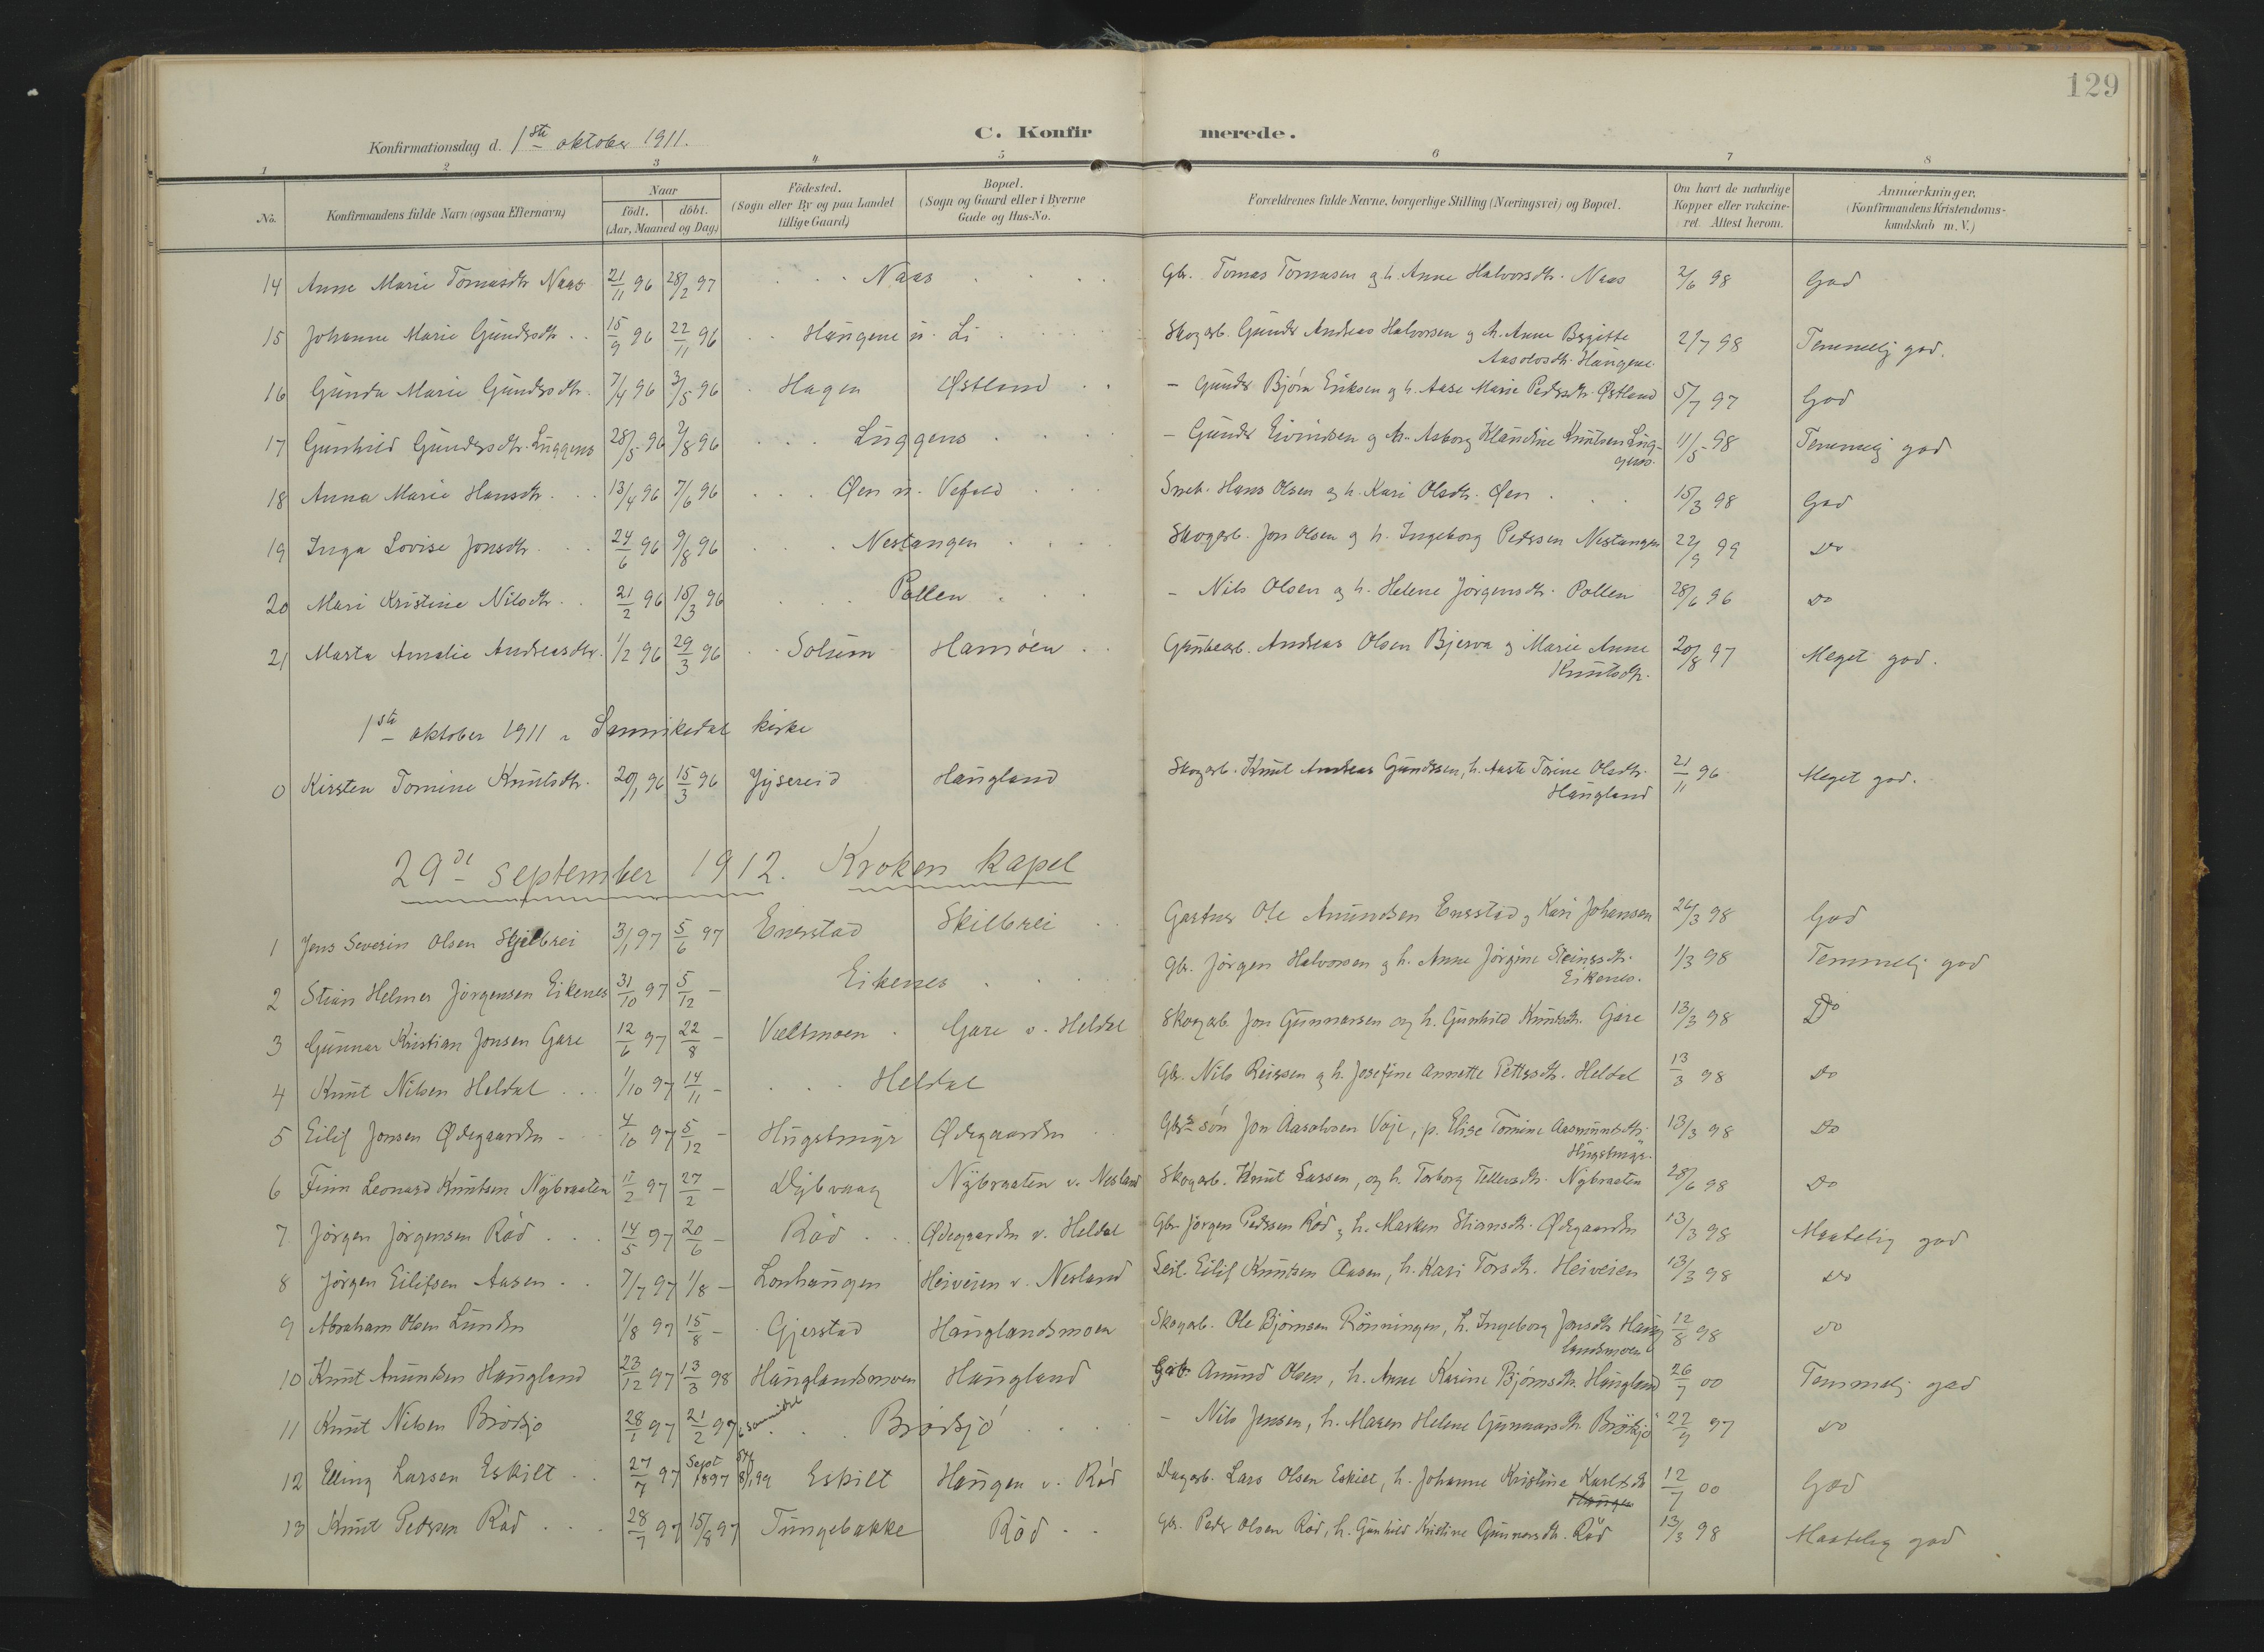 129
Konfirmationsdag d. 1ste oktober 1911. C. Konfirmerede.
1 2 3 4 5 6 7 8
No. Konfirmandens fulde Navn (ogsaa Efternavn) Naar födt. döbt. (Aar, Maaned og Dag) Födested. (Sogn eller By og paa Landet tillige Gaard) Bopæl. (Sogn og Gaard eller i Byerne Gade og Hus-No. Forældrenes fulde Navne, borgerlige Stilling (Næringsvei) og Bopæl. Om havt de naturlige Kopper eller vakcineret. Attest herom. Anmærkninger. (Konfirmandens Kristendomskundskab m. V.)
14 Anne Marie Tomasdtr Naas 21/11 96 28/2 97 Naas Gbr. Tomas Tomasen og h. Anne Halvorsdtr. Naas 2/6 98 God
15 Johanne Marie Gundersdtr. 15/9 96 22/11 96 Haugene u. Li Skogarb. Gunder Andreas Halvorsen og h. Anne Birgitte 2/7 98 Temmelig god.
Aasolvsdtr. Haugene
16 Gunda Marie Gundersdtr. 7/4 96 3/5 96 Hagen Østland - Gunder Bjørn Eriksen og h. Aase Marie Pedersdtr. Østland 5/7 97 God
17 Gunhild Gundersdtr. Luggens 28/5 96 2/8 96 Luggens - Gunder Eivindsen og h. Asborg Klaudine Knutsen Lug- 11/5 98 Temmelig god
gens.
18 Anna Marie Hansdtr. 13/4 96 7/6 96 Øen u. Vefald Snek. Hans Olsen og h. Kari Olsdtr. Øen 15/3 98 God
19 Inga Lovise Jonsdtr. 24/6 96 9/8 96 Nestangen Skogarb. Jon Olsen og h. Ingeborg Pedersen Nestangen 22/9 99 Do
20 Mari Kristine Nilsdtr. 21/2 96 15/3 96 Pollen - Nils Olsen og h. Helene Jörgensdtr. Pollen 28/6 96 Do
21 Marta Amalie Andreasdtr. 1/2 96 29/3 96 Solum Hansöen Grubearb. Andreas Olsen Bjerva og Marie Anne 20/8 97 Meget god.
Knutsdtr.
1ste oktober 1911 i Sannikedal kirke
0 Kirsten Tomine Knutsdtr. 20/1 96 15/3 96 Gjysereid Haugland Skogarb. Knut Andreas Gundersen, h. Aaste Torine Olsdtr. 21/11 96 Meget god.
Haugland
29de september 1912. Kroken kapel
1 Jens Severin Olsen Skjelbrei 3/1 97 5/6 97 Enerstad Skilbrei Gartner Ole Amundsen Enerstad og Kari Johansen 26/3 98 God
2 Stian Helmer Jörgensen Eikenes 31/10 97 5/12 - Eikenes Gbr. Jörgen Halvorsen og h. Anne Jörgine Steinersdtr. 1/3 98 Temmelig god
Eikenes.
3 Gunnar Kristian Jonsen Gare 12/6 97 22/8 - Valtmoen Gare v. Heldal Skogarb. Jon Gunnarsen og h. Gunhild Knutsdtr. Gare 13/3 98 Do
4 Knut Nilsen Heldal 1/10 97 14/11 - Heldal Gbr. Nils Reiersen og h. Josefine Annette Pettersdtr. Heldal 13/3 98 Do
5 Eilif Jonsen Ødegaarden 4/10 97 5/12 - Hugstmyr Ødegaarden Gbrs sön Jon Aasolvsen Voje, p. Elise Tomine Aasmundsdtr. 13/3 98 Do
Hugstmyr.
6 Finn Leonard Knutsen Nybraaten 11/2 97 27/2 - Dybvaag Nybraaten v. Nesland Skogarb. Knut Larsen, og h. Torborg Tellevsdtr. Nybraaten 28/6 98 Do
7 Jörgen Jörgensen Röd 14/5 97 20/6 - Röd Ødegaarden v. Heldal Gbr Jörgen Pedersen Röd og h. Marken Stiansdtr. Ødegaarden 13/3 98 Maatelig god
8 Jörgen Eilifsen Aasen 7/7 97 1/8 - Lonhaugen Heiveien v. Nesland Leil. Eilif Knutsen Aasen, h. Kari Torsdtr. Heiveien 13/3 98 Do
9 Abraham Olsen Lunden 1/8 97 15/8 - Gjerstad Hauglandsmoen Skogarb. Ole Björnsen Rönningen, h. Ingeborg Jonsdtr. Haug 12/8 98 Do
landsmoen
10 Knut Amundsen Haugland 23/12 97 13/3 98 Hauglandsmoen Haugland Gbr. Amund Olsen, h. Anne Karine Björnsdtr. Haugland 26/7 00 Temmelig god
11 Knut Nilsen Brödsjö 28/1 97 21/2 97 Brödsjö - Nils Jensen, h. Maren Helene Gunnarsdtr. Brödsjö 22/9 97 Do
12 Elling Larsen Eskilt 27/7 97 Sept 1897 Eskilt Haugen v. Röd Dagarb. Lars Olsen Eskilt, h. Johanne Kristine Karlsdtr. 12/7 00 God
Haugen
13 Knut Pedersen Röd 28/7 97 15/8 97 Tungebakke Röd Gbr. Peder Olsen Röd, h. Gunhild Kristine Gunnarsdtr. Röd 13/3 98 Maatelig god